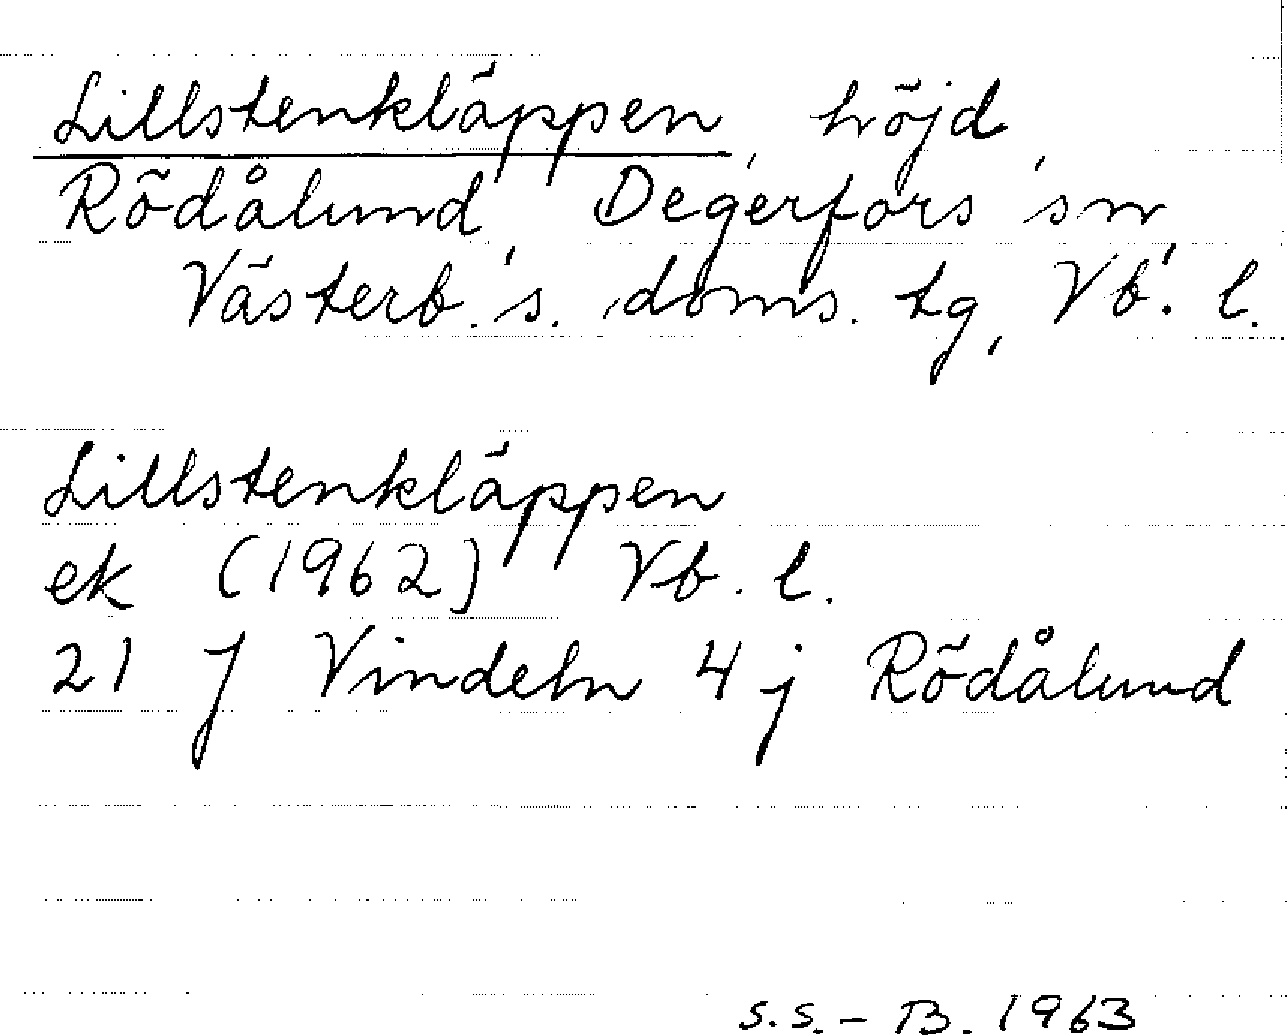 Lillstenkläppen, höjd,
Rödålund, Degerfors sn,
Västerb.'s. doms. tg, Vb. l.
Lillstenkläppen
ek (1962) Vb. l.
21 J Vindeln 4 j Rödålund
S.S. – B. 1963